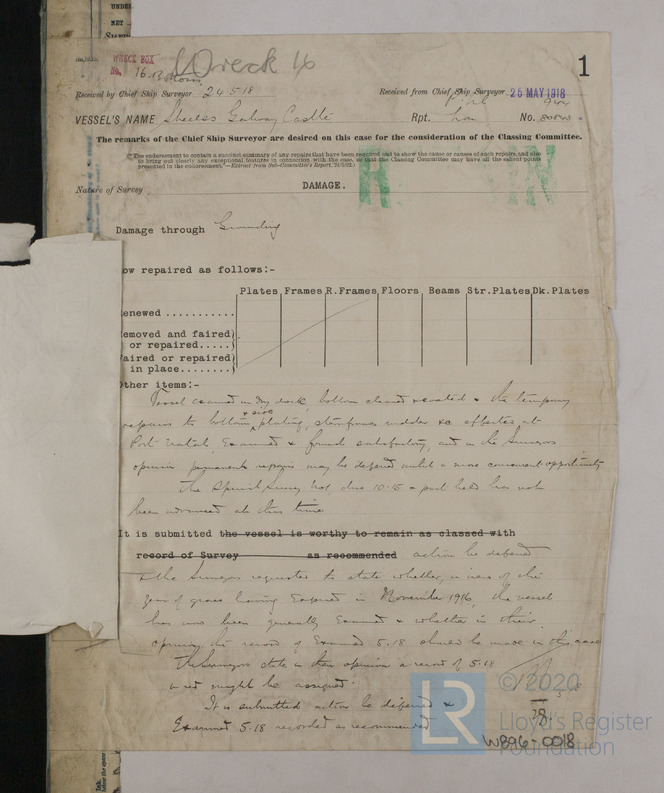 UNDE
NET
WRECK BOX
No. 16
Wreck 16
1
Received by Chief Ship Surveyor 24.5.18
Received from Chief Ship Surveyor 25 MAY 1918
VESSEL'S NAME Galway Castle Rpt. No.
The remarks of the Chief Ship Surveyor are desired on this case for the consideration of the Classing Committee.
The endorsement to contain a succinct summary of any repairs that have been required and to show the same or causes of such repairs, and also
to bring out clearly any exceptional features in connection with the case, so that the Classing Committee may have all the salient points
presented in the endorsement."—Extract from Sub-Committee's Report,
Nature of Survey DAMAGE.
Damage through Grounding
ow repaired as follows:-
Plates Frames R.Frames Floors Beams Str.Plates Dk.Plates
enewed ...........
emoved and faired)
or repaired.....)
aired or repaired)
in place........)
ther items:-
Vessel examined in dry dock, bottom cleaned & coated & the temporary
repairs to bottom & side plating, sternframe rudder &c effected at
Port Natal, Examined & found satisfactory, and in the Surveyors
opinion permanent repairs may be deferred until a more convenient opportunity
The Special Survey No1 due 10.15 has not
been advanced at this time
It is submitted the vessel is worthy to remain as classed with
record of Survey as recommended action be deferred
& the Surveyors requested to state whether, in view of the
year of grace having expired in November 1916, the vessel
has now been generally Examined & whether in their
opinion the record of Examined 5.18 should be made in this case
The Surveyors state in their opinion a record of 5.18
in red might be assigned.
It is submitted action be deferred &
Examined 5.18 recorded as recommended
©2020
LR
Lloyd's Register
Foundation
W896-0018